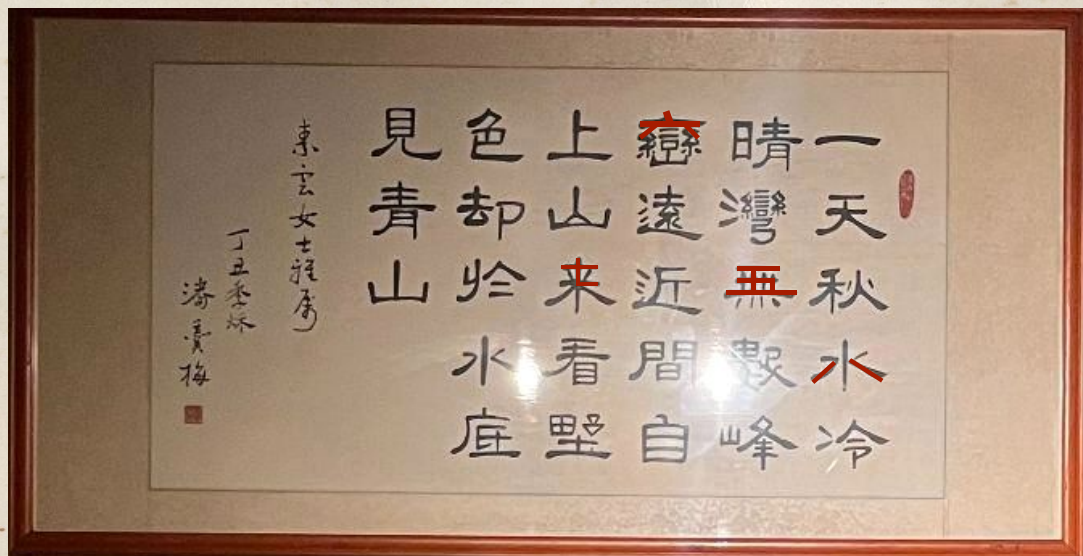 一天秋水冷
晴灣無數峰
巒遠近間自
上山来看墅
色却於水底
見青山
素雲女士雅属
丁丑季秋
濤 梅